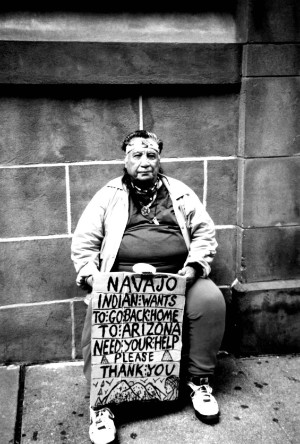 NAVAJO
INDIAN WANTS
TO GO BACK HOME
TO ARIZONA
NEED YOUR HELP
PLEASE
THANK YOU